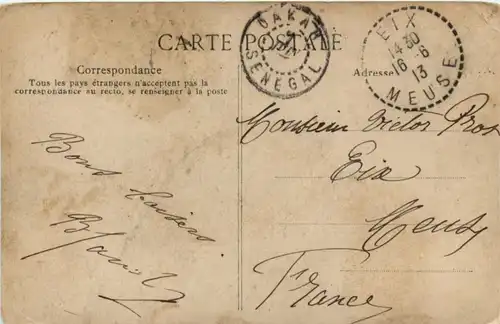 CARTE POSTALE
DAKAR
SENEGAL
EIX
14 30
16 - 6
13
MEUSE
Correspondance
Tous les pays étrangers n'acceptent pas la
correspondance au recto, se renseigner à la poste
Adresse
Bons baisers
Monsieur Victor Pros
Eix
Meuse
France